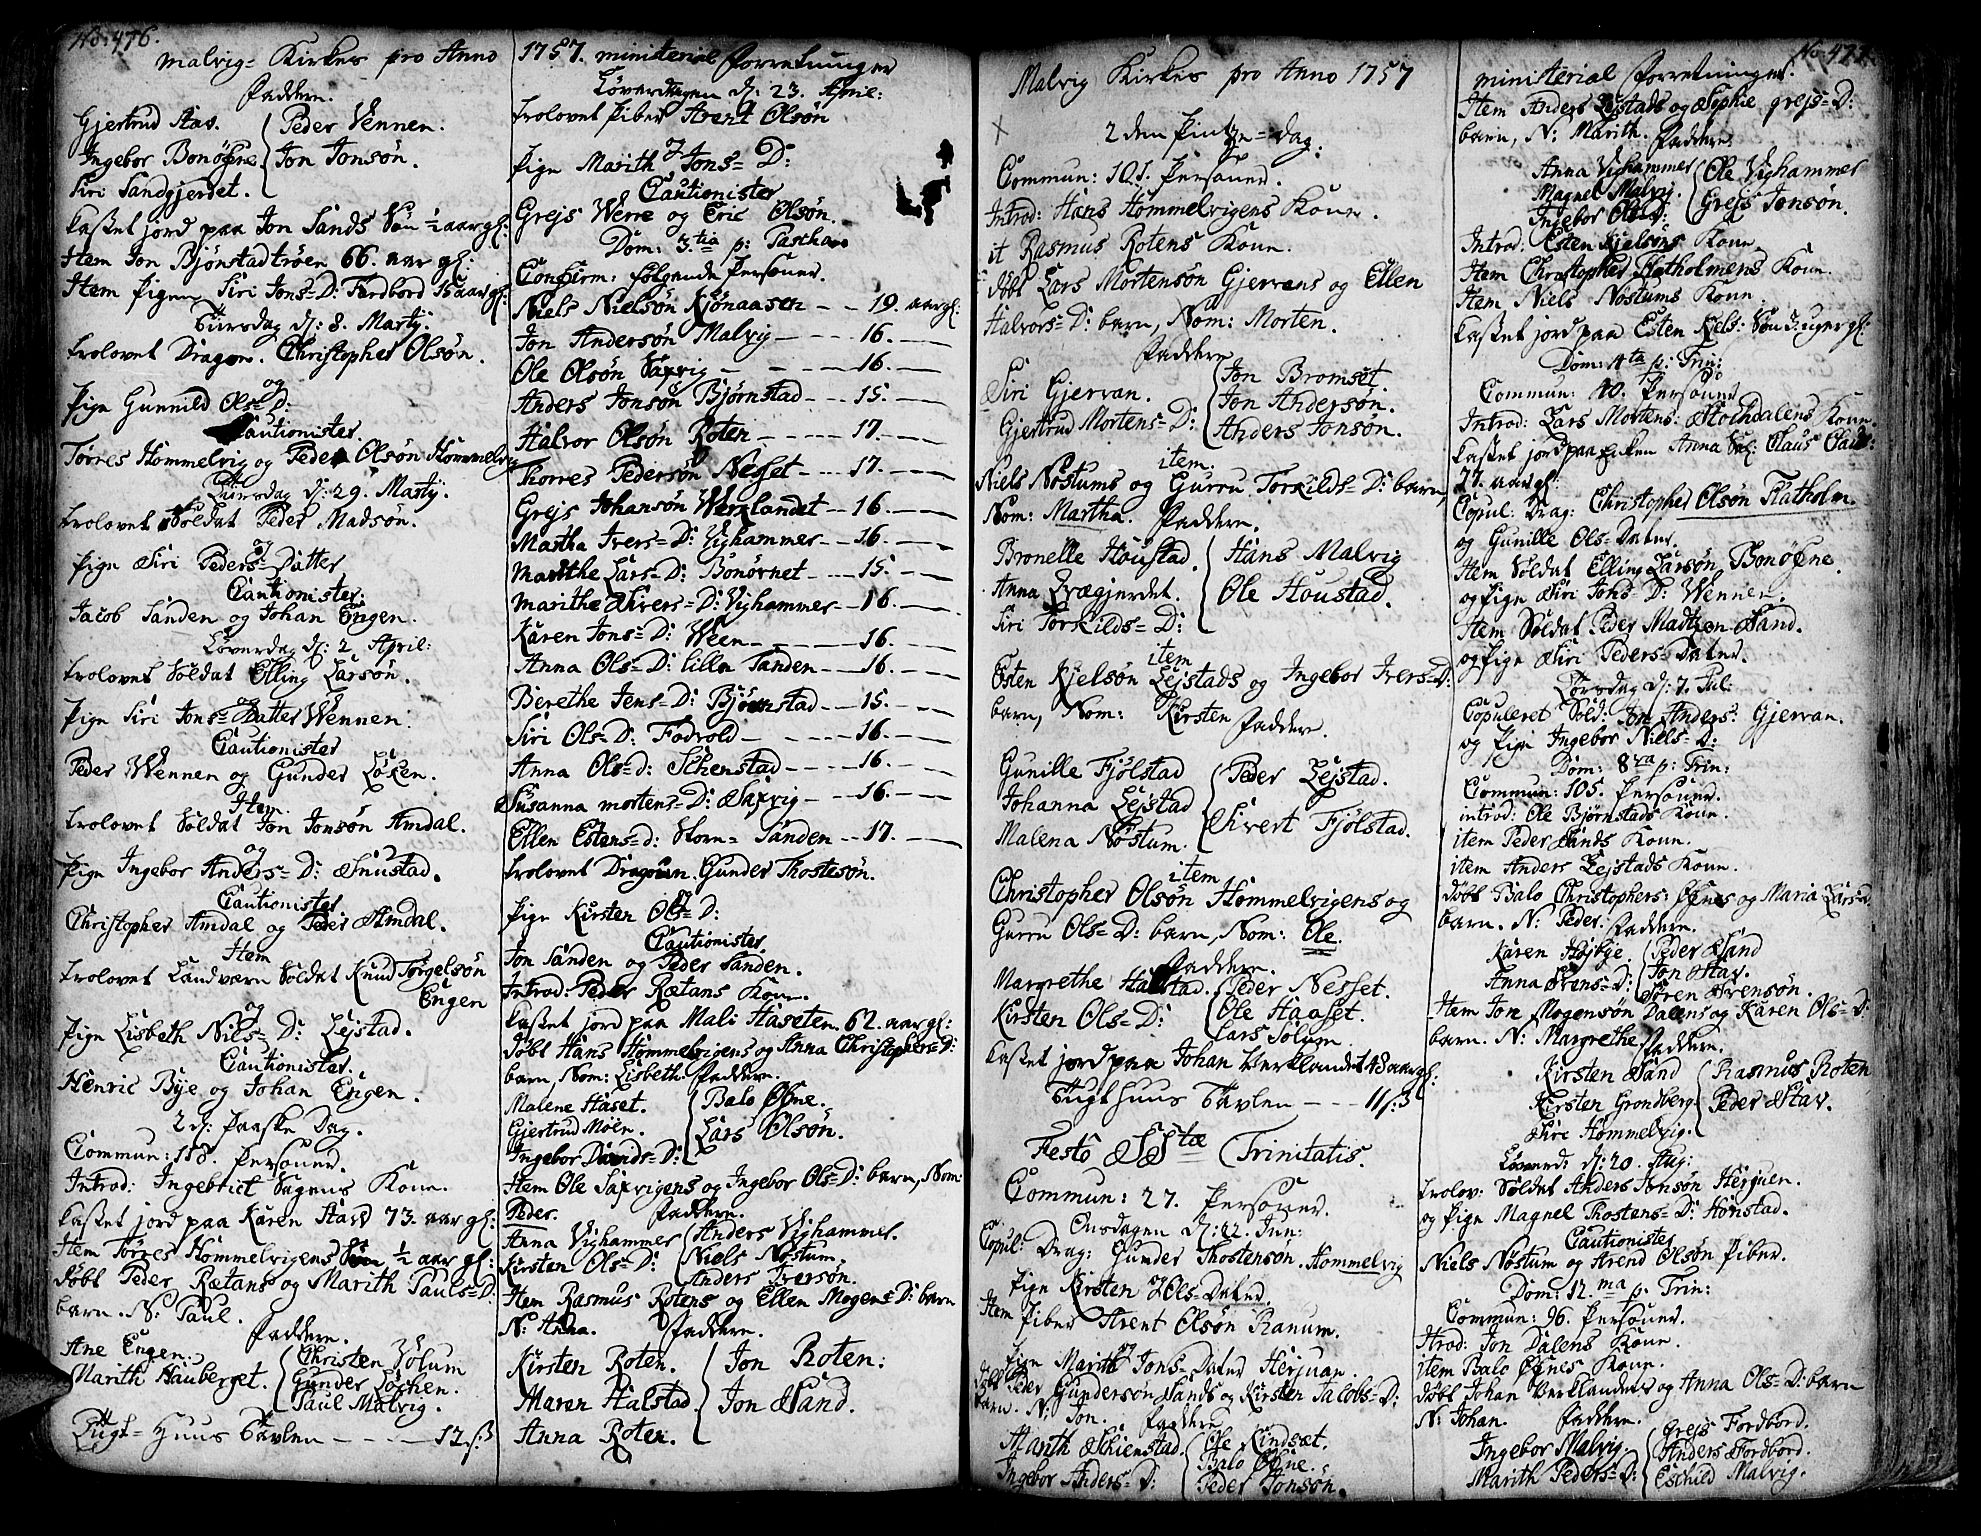 No: 476.
Malvig= Kirkes pro Anno 1757. ministerial Forretninger
Faddere.
Gjertrud Aas. Peder Vennen.
Ingebor Bonøfne. Jon Jonsøn.
Siri Sandgjerdet.
Kastet jord paa Jon Sands Søn ½ aar gl:
Item Jon Bjønstadtrøen 66. aar gl:
Item Pigen Siri Jons=D: Fordbord 15 aar gl:
Tirsdag d: 8. Martij.
trolovet Dragon. Christopher Olsøn.
og
Pige Gunnild Ols=D:
Cautionister.
Torres Hommelvig og Peder Olsøn Hommelvig
Tiirsdag d: 29. Martij.
trolovet Soldat Peder Madsøn.
og
Pige Siri Peders=Datter
Cautionister:
Jacob Sanden og Johan Engen.
Løverdag d: 2 April:
trolovet Soldat Elling Larsøn.
og
Pige Siri Jons=Datter Wennen:
Cautionister
Peder Wennen og Gunder Løxen.
Item
trolovet Soldat Jon Jonsøn Amdal.
og
Pige Ingebor Anders=D: Snustad.
Cautionister
Christopher Amdal og Peder Amdal.
Item
trolovet Landværn Soldat Knud Torgelsøn
Engen
og
Pige Lisbeth Nils=D: Lejstad.
Cautionister:
Henric Bye og Johan Engen.
2 d: Paaske Dag.
Commun: 118. Personer.
Introd: Ingebrict Vagens Kone.
Kastet jord paa Karen Stav 73. aar gl:
Item Torres Hommelvigens Søn ½ aar gl:
døbt Peder Rætans og Marith Pauls=D:
barn. N: Paul.
Faddere.
Ane Engen. Christen Solum
Marith Hauberget. Gunder Løchen.
Paul Malvig.
Tugt=Huus Tavlen - - - - 12 s:
Løverdagen d: 23. April:
trolovet Piber Arent Olsøn
og
Pige Marith Jons=D:
Cautionister
Grejs Werre og Eric Olsøn.
Dom: 3.tia p: Pascha
Confirm: følgende Personer.
Niels Nielsøn Kjønaasen - - 19. aar gl:
Jon Andersøn Malvig - - - 16. -
Ole Olsøn Saxvig - - - 16. -
Anders Jonsøn Bjørnstad - - 15. -
Halvor Olsøn Roten - - - 17. -
Thorres Pedersøn Nesset - - 17. -
Grejs Johansøn Werklandet - 16. -
Martha Ivers=D: Vighammer - 16. -
Marithe Lars=D: Bonørnet - - 15. -
Marithe Sivers=D: Vighammer - 16. -
Karen Jons=D: Ween - - - 16. -
Anna Ols=D: lille Sanden - - 16. -
Berethe Jens=D: Bjørnstad - - 15. -
Siri Ols=D: Fodvold - - - 16. -
Anna Ols=d: Schenstad - - - 16. -
Susanna mortens=D: Saxvig - - 16. -
Ellen Estens=d: Storn=Sanden - - 17. -
trolovet Dragoun. Gunder Thostesøn.
og
Pige Kirsten Ols=D:
Cautionister.
Jon Sanden og Peder Sanden.
Introd: Peder Rætans Kone.
Kastet jord paa Mali Haseten 62. aar gl:
døbt Hans Hommelvigens og Anna Christophers=D:
barn, Nom: Lisbeth. Faddere.
Malene Haset. Balo Øfne.
Gjertrud Moen. Lars Olsøn.
Ingebor Davids=D:
Item Ole Saxvigens og Ingebor Ols=D: barn, Nom:
Peder. Faddere.
Anna Vighammer Anders Vighammer.
Kirsten Ols=D: Niels Nøstum.
Anders Iversøn.
Item Rasmus Rotens og Ellen Mogens=D: barn
N: Anna. Faddere.
Kirsten Roten. Jon Roten:
Maren Halstad. Jon Sand.
Anna Roten.
No 477.
Malvig Kirkes pro Anno 1757 ministerial Forretninger.
2 den Pintze=dag:
Commun: 101. Personer.
Introd: Hans Hommelvigens Kone.
it Rasmus Rotens Kone.
døbt Lars Mortensøn Gjervans og Ellen
Halvors=D: barn, Nom: Morten.
Faddere
Siri Gjervan. Jon Bromset.
Gjertrud Mortens=D: Jon Andersøn.
Anders Jonsøn.
item.
Niels Nøstums og Gurru Torkilds=D: barn,
Nom: Martha. Faddere.
Bronelle Houstad. Hans Malvig
Anna Trægjerdet. Ole Houstad.
Siri Torkilds=D:
item
Esten Kjelsøn Lejstads og Ingebor Ivers=D:
barn, Nom: Kirsten Faddere.
Gunille Fjølstad Peder Lejstad.
Johanna Lejstad Sivert Fjølstad.
Malena Nøstum.
item
Christopher Olsøn Hommelvigens og
Gurru Ols=D: barn, Nom: Ole.
Faddere.
Margrethe Halstad. Peder Nesset.
Kirsten Ols=D: Ole Haaset.
Lars Solum.
Kastet jord paa Johan Verklandet 48 aar gl:
Tugthuus Tavlen - - - 11 s:
Festo SStæ Trinitatis.
Commun: 27. Personer.
Onsdagen d: 22. Jun:
Copul: Drag: Gunder Thostensøn. Hommelvig
Pige Kirsten Ols=Dater.
Item Piber Arent Olsøn Ranum.
og
Pige Marith Jons=Dater Herjuan.
døbt Peder Gundersøn Sands og Kirsten Jacobs=D:
barn. N: Jon. Faddere
Marith Schienstad. Ole Kindsæt.
Ingebor Anders=D: Balo Øfne.
Peder Jonsøn.
Item Anders Lejstads og Sophie grejs=D:
barn, N: Marith. Faddere.
Anna Vighammer Ole Vighammer
Magnel Malvig. Grejs Jonsøn.
Ingebor Ols=D:
Introd: Esten Kjelsøns Kone
Item Christopher Flatholmens Kone.
Item Niels Nøstums Kone.
Kastet jord paa Esten Kjels: Søn 3. uger gl:
Dom: 4ta p: Trin:
Commun: 40. Personer
Introd: Lars Mortens: Stochdalens Kone.
Kastet jord paa Enken Anna Sal: Claus Claus:
77. aar gl:
Copul: Drag: Christopher Olsøn Flatholm
og Gunille Ols=Dater.
Item Soldat Elling Larsøn Bonøfne.
og Pige Siri Johs=D: Wennen.
Item Soldat Peder Madtzøn Sand.
og Pige Siri Peders=Dater.
Torsdag d: 7. Jul:
Copuleret Sold: Jon Anders: Gjervan.
og Pige Ingebor Niels=D:
Dom: 8va p: Trin:
Commun: 105. Personer.
introd: Ole Bjørnstads Kone.
item Peder Sands Kone.
item Anders Lejstads Kone.
døbt Balo Christophers: Øfnes og Maria Lars=d.
barn. N: Peder. Faddere.
Karen Høybye. Peder Sand
Anna Svens=D: Jon Stav.
Søren Svensøn.
Item Jon Mogensøn Dalens og Karen Ols=D:
barn. N: Margrethe Faddere.
Kirsten Sand Rasmus Roten
Kirsten Grondberg Peder Stav.
Sire Hommelvig.
Løverd: d: 20. Aug:
trolov: Soldat Anders Jonsøn Herjuen.
og Pige Magnel Thostens=D: Honstad.
Cautionister
Niels Nøstum og Arend Olsøn Piber.
Dom: 12.ma p: Trin:
Commun: 96. Personer.
Itrod: Jon Dalens Kone.
item Balo Øfnes Kone.
døbt Johan Verklandets og Anna Ols=D: barn
N: Johan. Faddere.
Ingebor Malvig. Grejs Fordbord.
Marith Peders=D: Anders Fordbord.
Eschild Malvig.